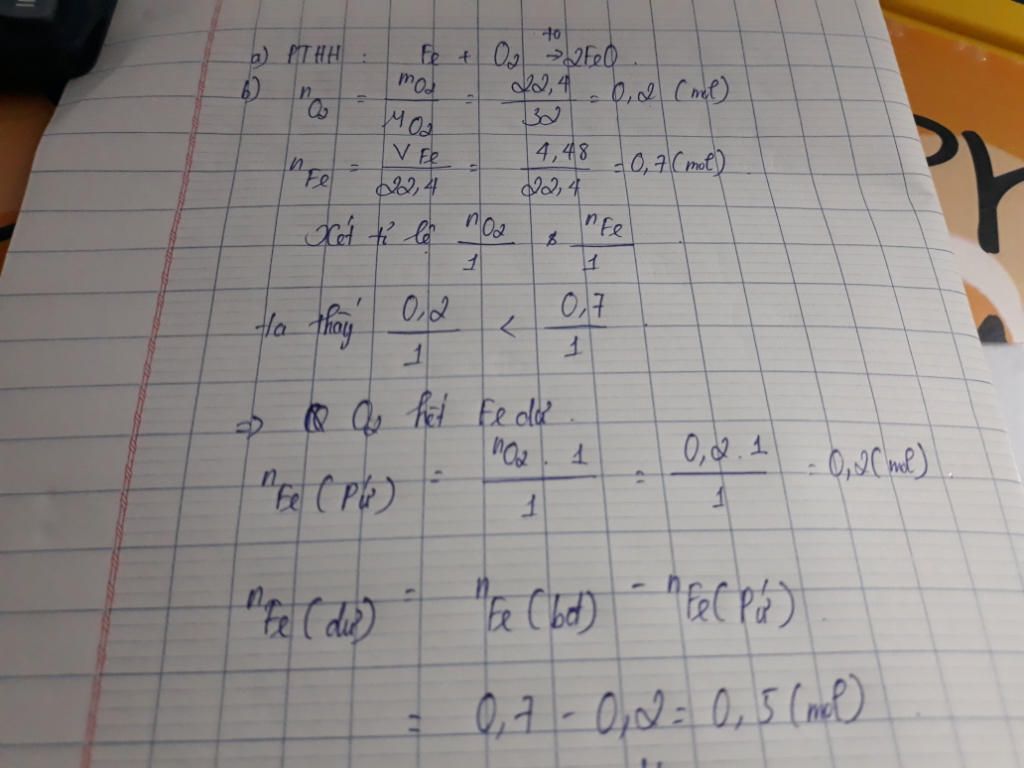 a) PTHH : Fe + O₂ →ᵗ⁰ 2FeO.
b) nO₂ = mO₂/MO₂ = 22,4/32 = 0,2 (mol)
nFe = VFe/22,4 = 4,48/22,4 = 0,7 (mol)
Xét tỉ lệ nO₂/1 & nFe/1
ta thấy 0,2/1 < 0,7/1
=> O₂ hết Fe dư.
nFe (pứ) = nO₂ . 1/1 = 0,2 . 1/1 = 0,2 (mol).
nFe (dư) = nFe (bđ) - nFe (pứ)
= 0,7 - 0,2 = 0,5 (mol)